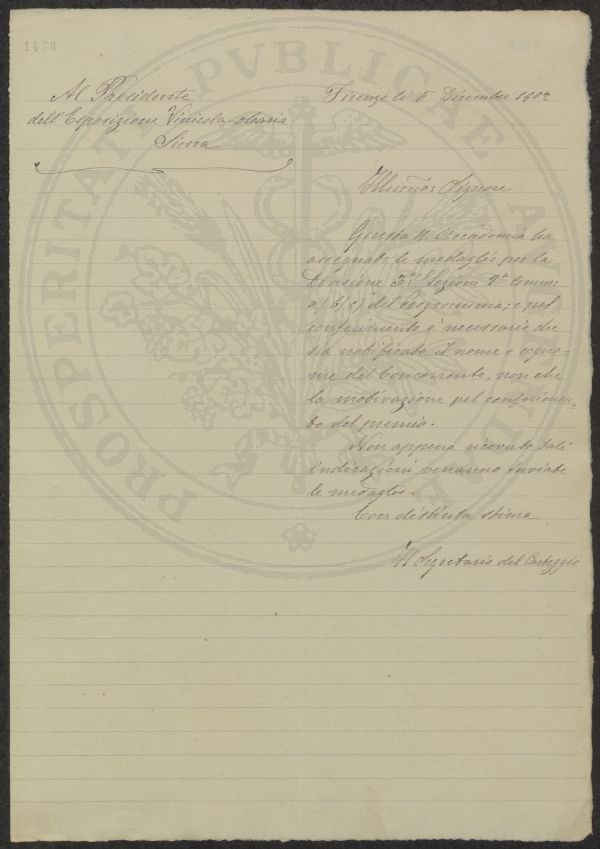 1468
Al Presidente
dell'Esposizione Vinicola-olearia
Siena
Firenze li 6 Dicembre 1902
Illmo Signore
Questa R. Accademia ha
assegnate le medaglie per la
Divisione 3ª Sezione 2ª comma
a) b) c) del Programma; e pel
conferimento è necessario che
sia notificato il nome e cogno-
me del Concorrente, non che
la motivazione pel conferimen-
to del premio.
Non appena ricevute tali
indicazioni verranno inviate
le medaglie.
Con distinta stima
Il Segretario del Carteggio
PROSPERITATI PVBLICAE AV